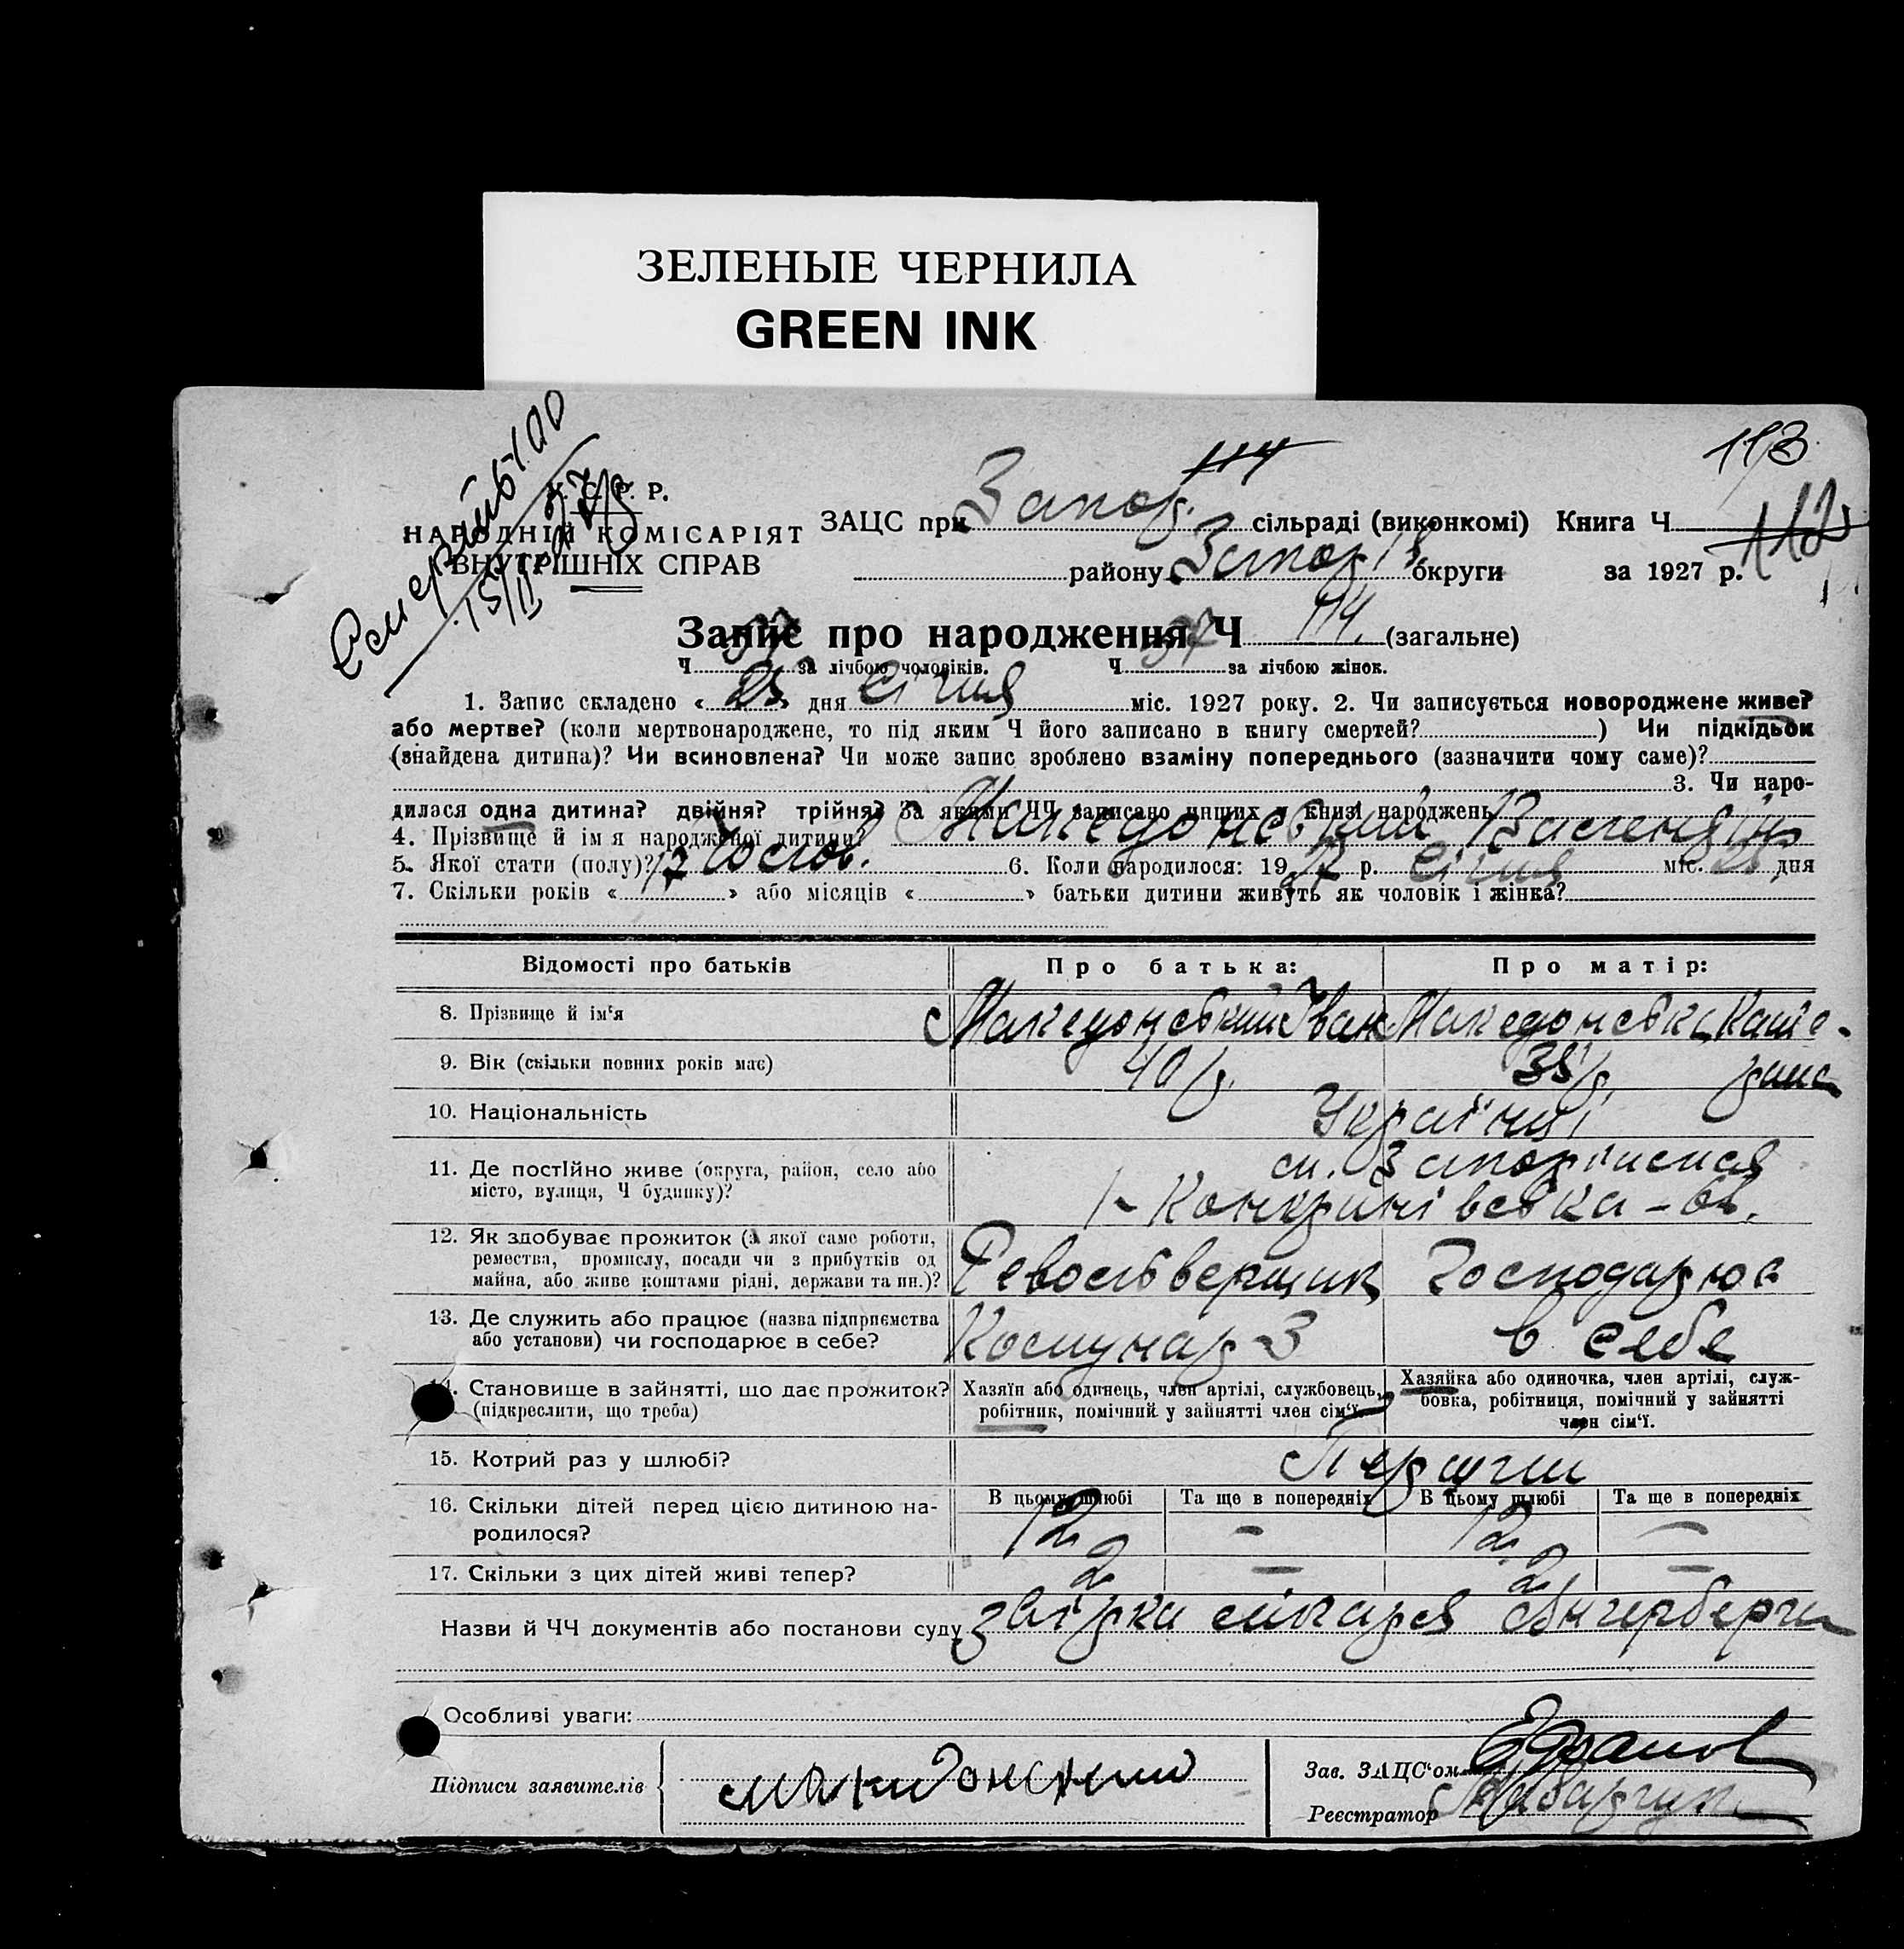 ЗЕЛЕНЫЕ ЧЕРНИЛА
GREEN INK
113
114
У. С. Р. Р.
НАРОДНІЙ КОМІСАРІЯТ
ВНУТРІШНІХ СПРАВ
ЗАЦС при Запор. сільраді (виконкомі) Книга Ч. 112
району Запоріз округи за 1927 р.
Запис про народження Ч 114. (загальне)
Ч. за лічбою чоловіків. Ч. 57 за лічбою жінок.
1. Запис складено « 25 » дня Січня міс. 1927 року. 2. Чи записується новороджене живе?
або мертве? (коли мертвонароджене, то під яким Ч його записано в книгу смертей? ) Чи підкідьок
(знайдена дитина)? Чи всиновлена? Чи може запис зроблено взаміну попереднього (зазначити чому саме)?
3. Чи наро-
дилася одна дитина? двійня? трійня? За якими ЧЧ записано инших у книзі народжень
4. Прізвище й імя народженої дитини? Македонський Валентін
5. Якої стати (полу)? Чолов. 6. Коли народилося: 1927 р. Січня міс. дня
7. Скільки років « 17 » або місяців « » батьки дитини живуть як чоловік і жінка?
Відомості про батьків Про батька: Про матір:
8. Прізвище й ім‘я Македонський Іван Македонська Кате-
9. Вік (скільки повних років має) 40 р. 35 р. рина
10. Національність Українці
11. Де постійно живе (округа, район, село або м. Запоріжжя
місто, вулиця, Ч будинку)?
12. Як здобуває прожиток (з якої саме роботи,
ремества, промислу, посади чи з прибутків од
майна, або живе коштами рідні, держави та ин.)? Револьверщик Господарює
13. Де служить або працює (назва підприємства
або установи) чи господарює в себе? Комунар 3 в себе
14. Становище в зайнятті, що дає прожиток?
(підкреслити, що треба)
Хазяїн або одинець, член артілі, службовець,
робітник, помічний у зайнятті член сім‘ї.
Хазяйка або одиночка, член артілі, служ-
бовка, робітниця, помічний у зайнятті
член сім‘ї.
15. Котрий раз у шлюбі? Перший
16. Скільки дітей перед цією дитиною на-
родилося?
В цьому шлюбі Та ще в попередніх В цьому шлюбі Та ще в попередніх
12 – 12 –
17. Скільки з цих дітей живі тепер? 2 – 2 –
Назви й ЧЧ документів або постанови суду довідка лікаря
Особливі уваги:
Підписи заявителів Макидонский
Зав. ЗАЦС‘ом
Реєстратор